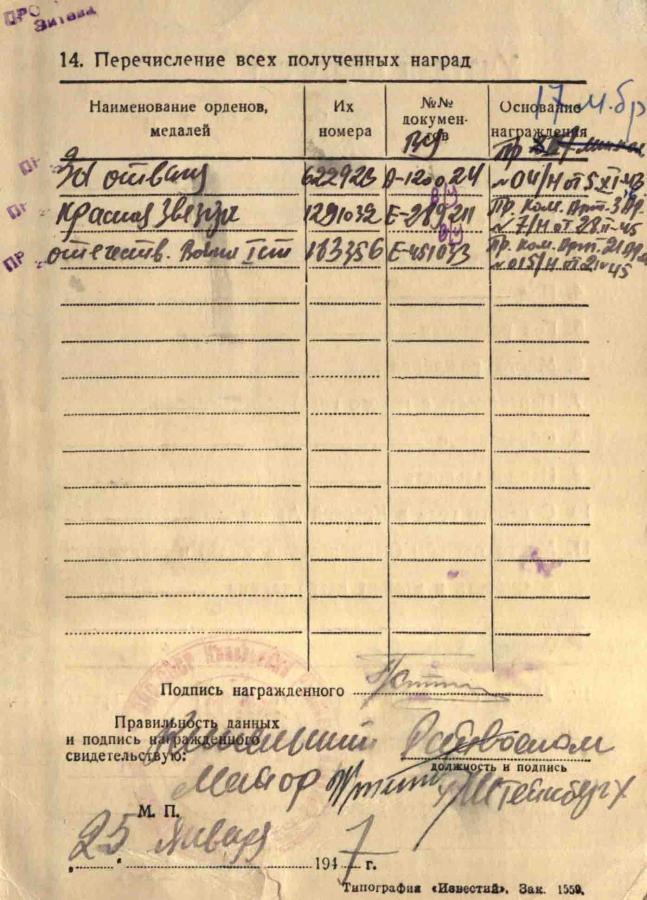 14. Перечисление всех полученных наград
17 м. бр
Наименование орденов, медалей
Их номера
№№ документов
Основание награждения
ВУ
Пр
За отвагу 622923 А-120024 №04/Н от 5 XI-43
Красная Звезда 1291032 Е-289211 Пр. Ком. Арт. 3
№ 7/Н от 28 II-45
отечеств. Война I ст 163356 Е-451033 Пр. Ком. Арт. 21
№015/Н от 45
Подпись награжденного
Правильность данных
и подпись награжденного
свидетельствую:
Райвоенком
должность и подпись
Майор
Штейнбург
М. П.
„ 25 “ Января 1947 г.
Типография «Известий». Зак. 1559.